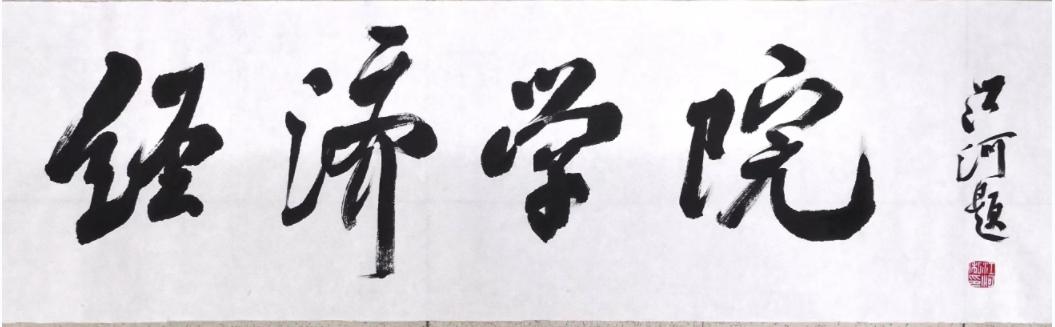 经济学院
江河题